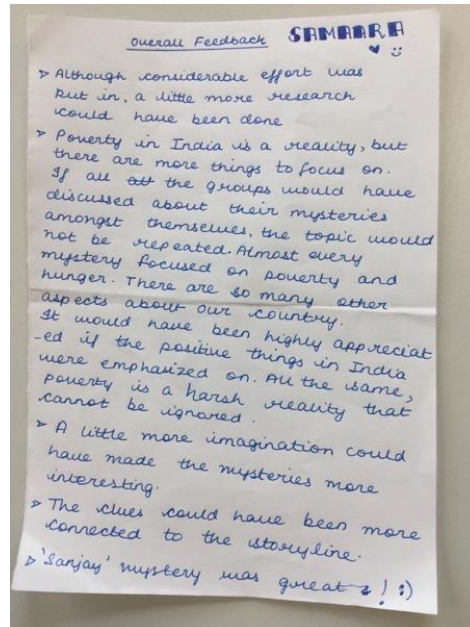 Overall Feedback SAMAARA
♥ :)
> Although considerable effort was
put in, a little more research
could have been done
> Poverty in India is a reality, but
there are more things to focus on.
If all the groups would have
discussed about their mysteries
amongst themselves, the topic would
not be repeated. Almost every
mystery focused on poverty and
hunger. There are so many other
aspects about our country.
It would have been highly appreciat
-ed if the positive things in India
were emphasized on. All the same,
poverty is a harsh reality that
cannot be ignored.
> A little more imagination could
have made the mysteries more
interesting.
> The clues could have been more
connected to the storyline.
> 'Sanjay' mystery was great! :)